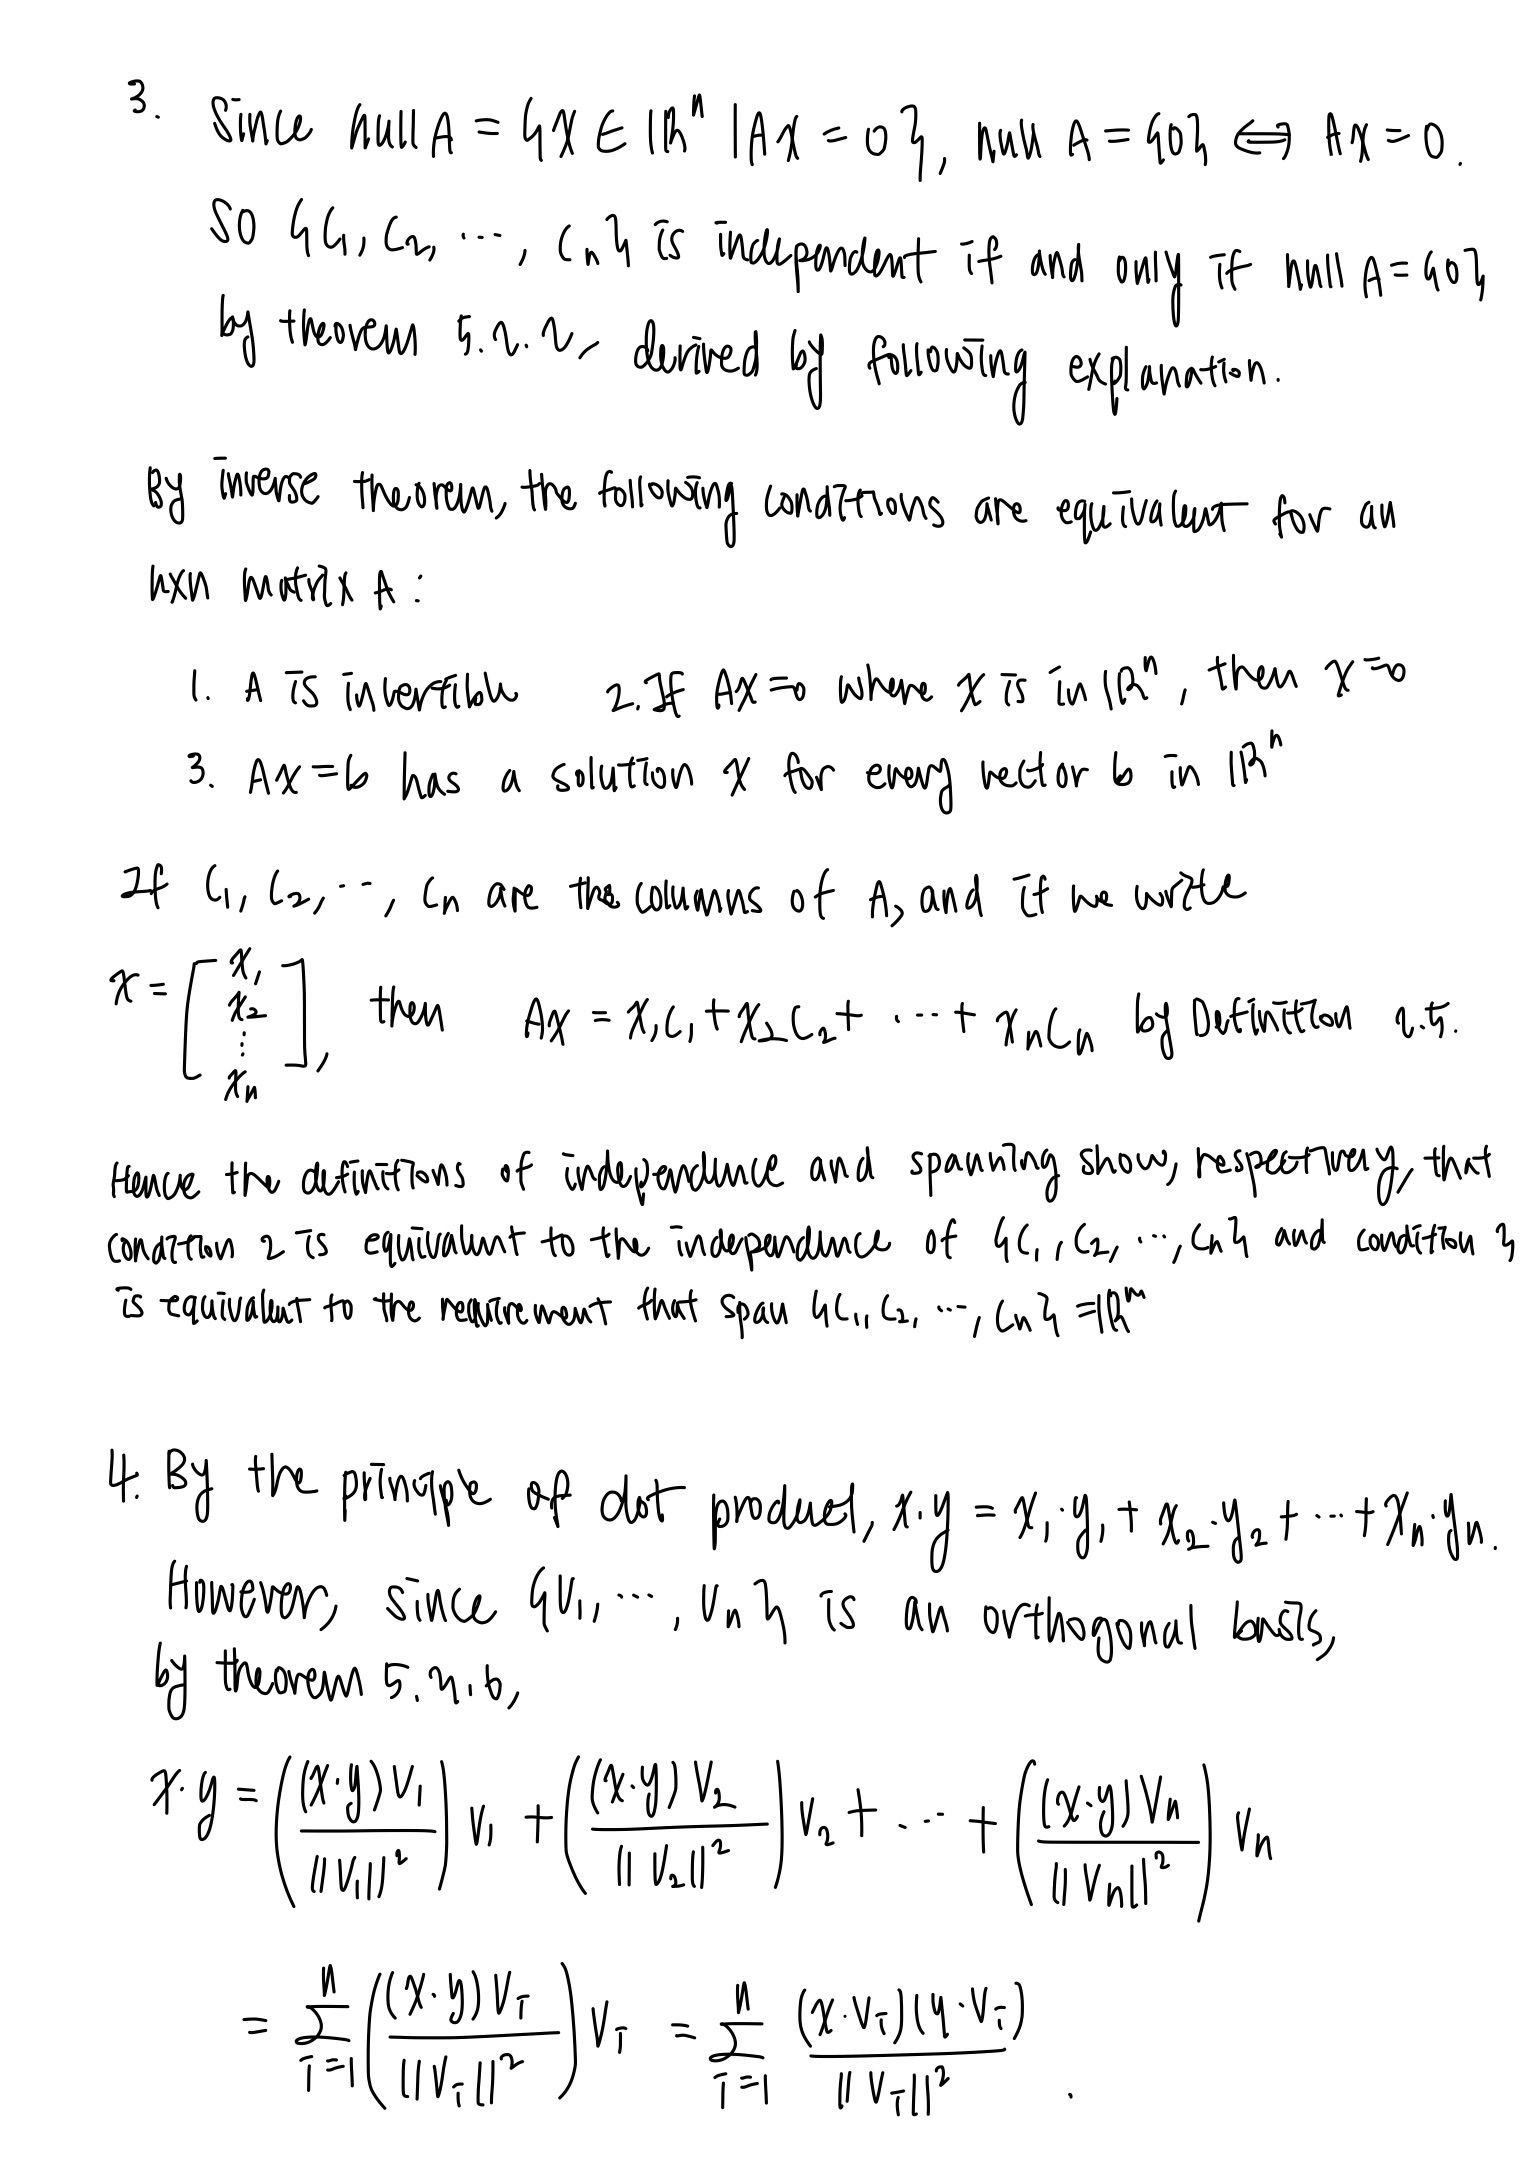 3. Since null A = {X ∈ ℝⁿ | AX = 0}, null A = {0} ⟺ AX = 0.
So {C₁, C₂, ⋯, Cn} is independent if and only if null A = {0}
by theorem 5.2.2, derived by following explanation.
By inverse theorem, the following conditions are equivalent for an
n×n matrix A :
1. A is invertible 2. If AX=0 where X is in ℝⁿ, then X=0
3. AX=b has a solution X for every vector b in ℝⁿ
If C₁, C₂, ⋯, Cn are the columns of A, and if we write
X = [x₁ x₂ ⋮ xn], then AX = x₁C₁ + x₂C₂ + ⋯ + xnCn by Definition 2.5.
Hence the definitions of independence and spanning show, respectively, that
condition 2 is equivalent to the independence of {C₁, C₂, ⋯, Cn} and condition 3
is equivalent to the requirement that span {C₁, C₂, ⋯, Cn} = ℝᵐ
4. By the principle of dot product, x·y = x₁·y₁ + x₂·y₂ + ⋯ + xn·yn.
However, since {V₁, ⋯, Vn} is an orthogonal basis,
by theorem 5.3.6,
x·y = ((x·y)V₁ / ||V₁||²) V₁ + ((x·y)V₂ / ||V₂||²) V₂ + ⋯ + ((x·y)Vn / ||Vn||²) Vn
= Σ_{i=1}^{n} ((x·y)Vi / ||Vi||²) Vi = Σ_{i=1}^{n} (x·Vi)(y·Vi) / ||Vi||² .